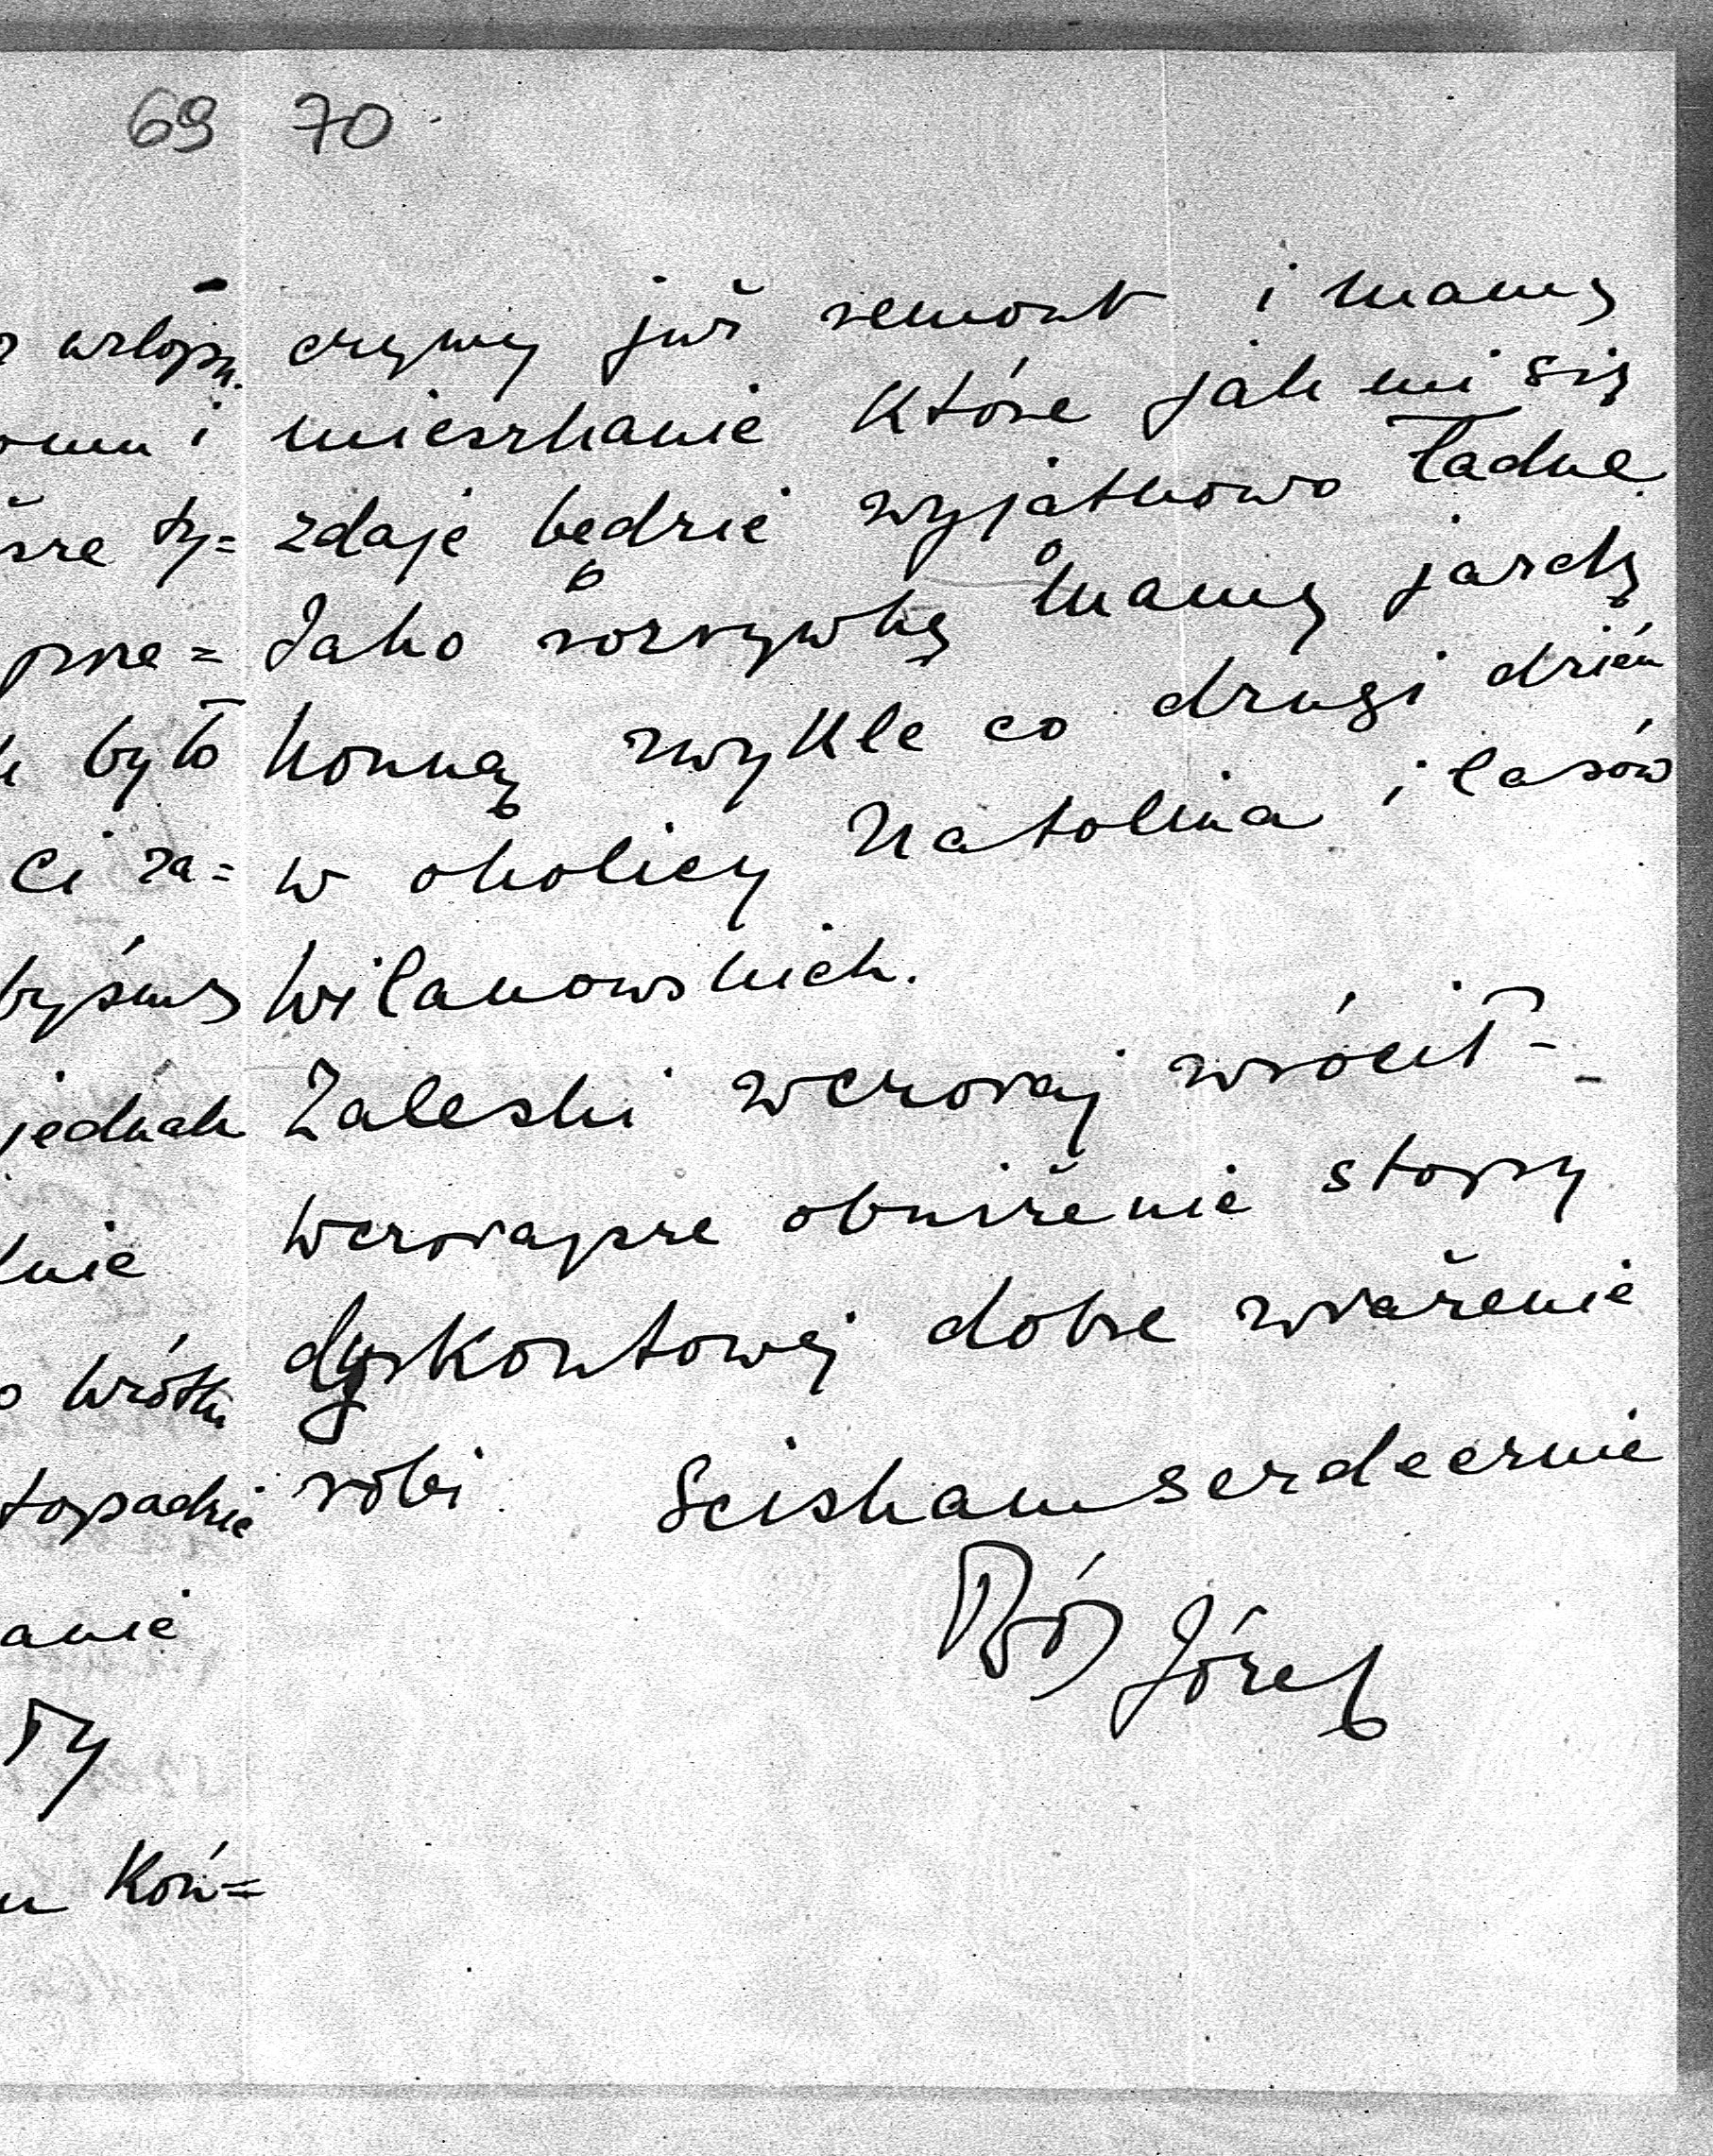 69 70
urlopu.
i
ty=
prze=
było
Ci za=
byśmy
jednak
wrótku
topadzie
anie
Ty
Koń=
czymy już remont i mamy
mieszkanie które jak mi się
zdaje będzie wyjątkowo ładne.
Jako rozrywkę mamy jazdę
konną zwykle co drugi dzień
w okolicy Natolina i lasów
Wilanowskich.
Zaleski wczoraj wrócił -
wczorajsze obniżenie stopy
dyskontowej dobre wrażenie
robi. Sciskam serdecznie
Józef